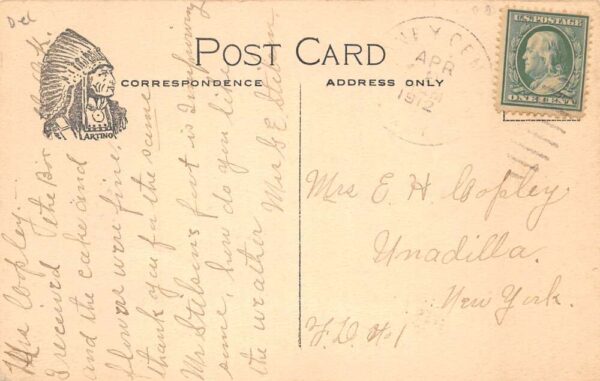 Del
POST CARD
CORRESPONDENCE
ADDRESS ONLY
ARTINO
NEY CEN
APR
1912
U.S. POSTAGE
ONE CENT
Mrs. Copley.
I received the Box
and the cake and
flowers were fine.
thank you for the same
Mr Stelson's foot is Improving
some, how do you like
the weather Mrs G E Stelson
Mrs E. H. Copley
Unadilla.
New York.
F. D. No 1